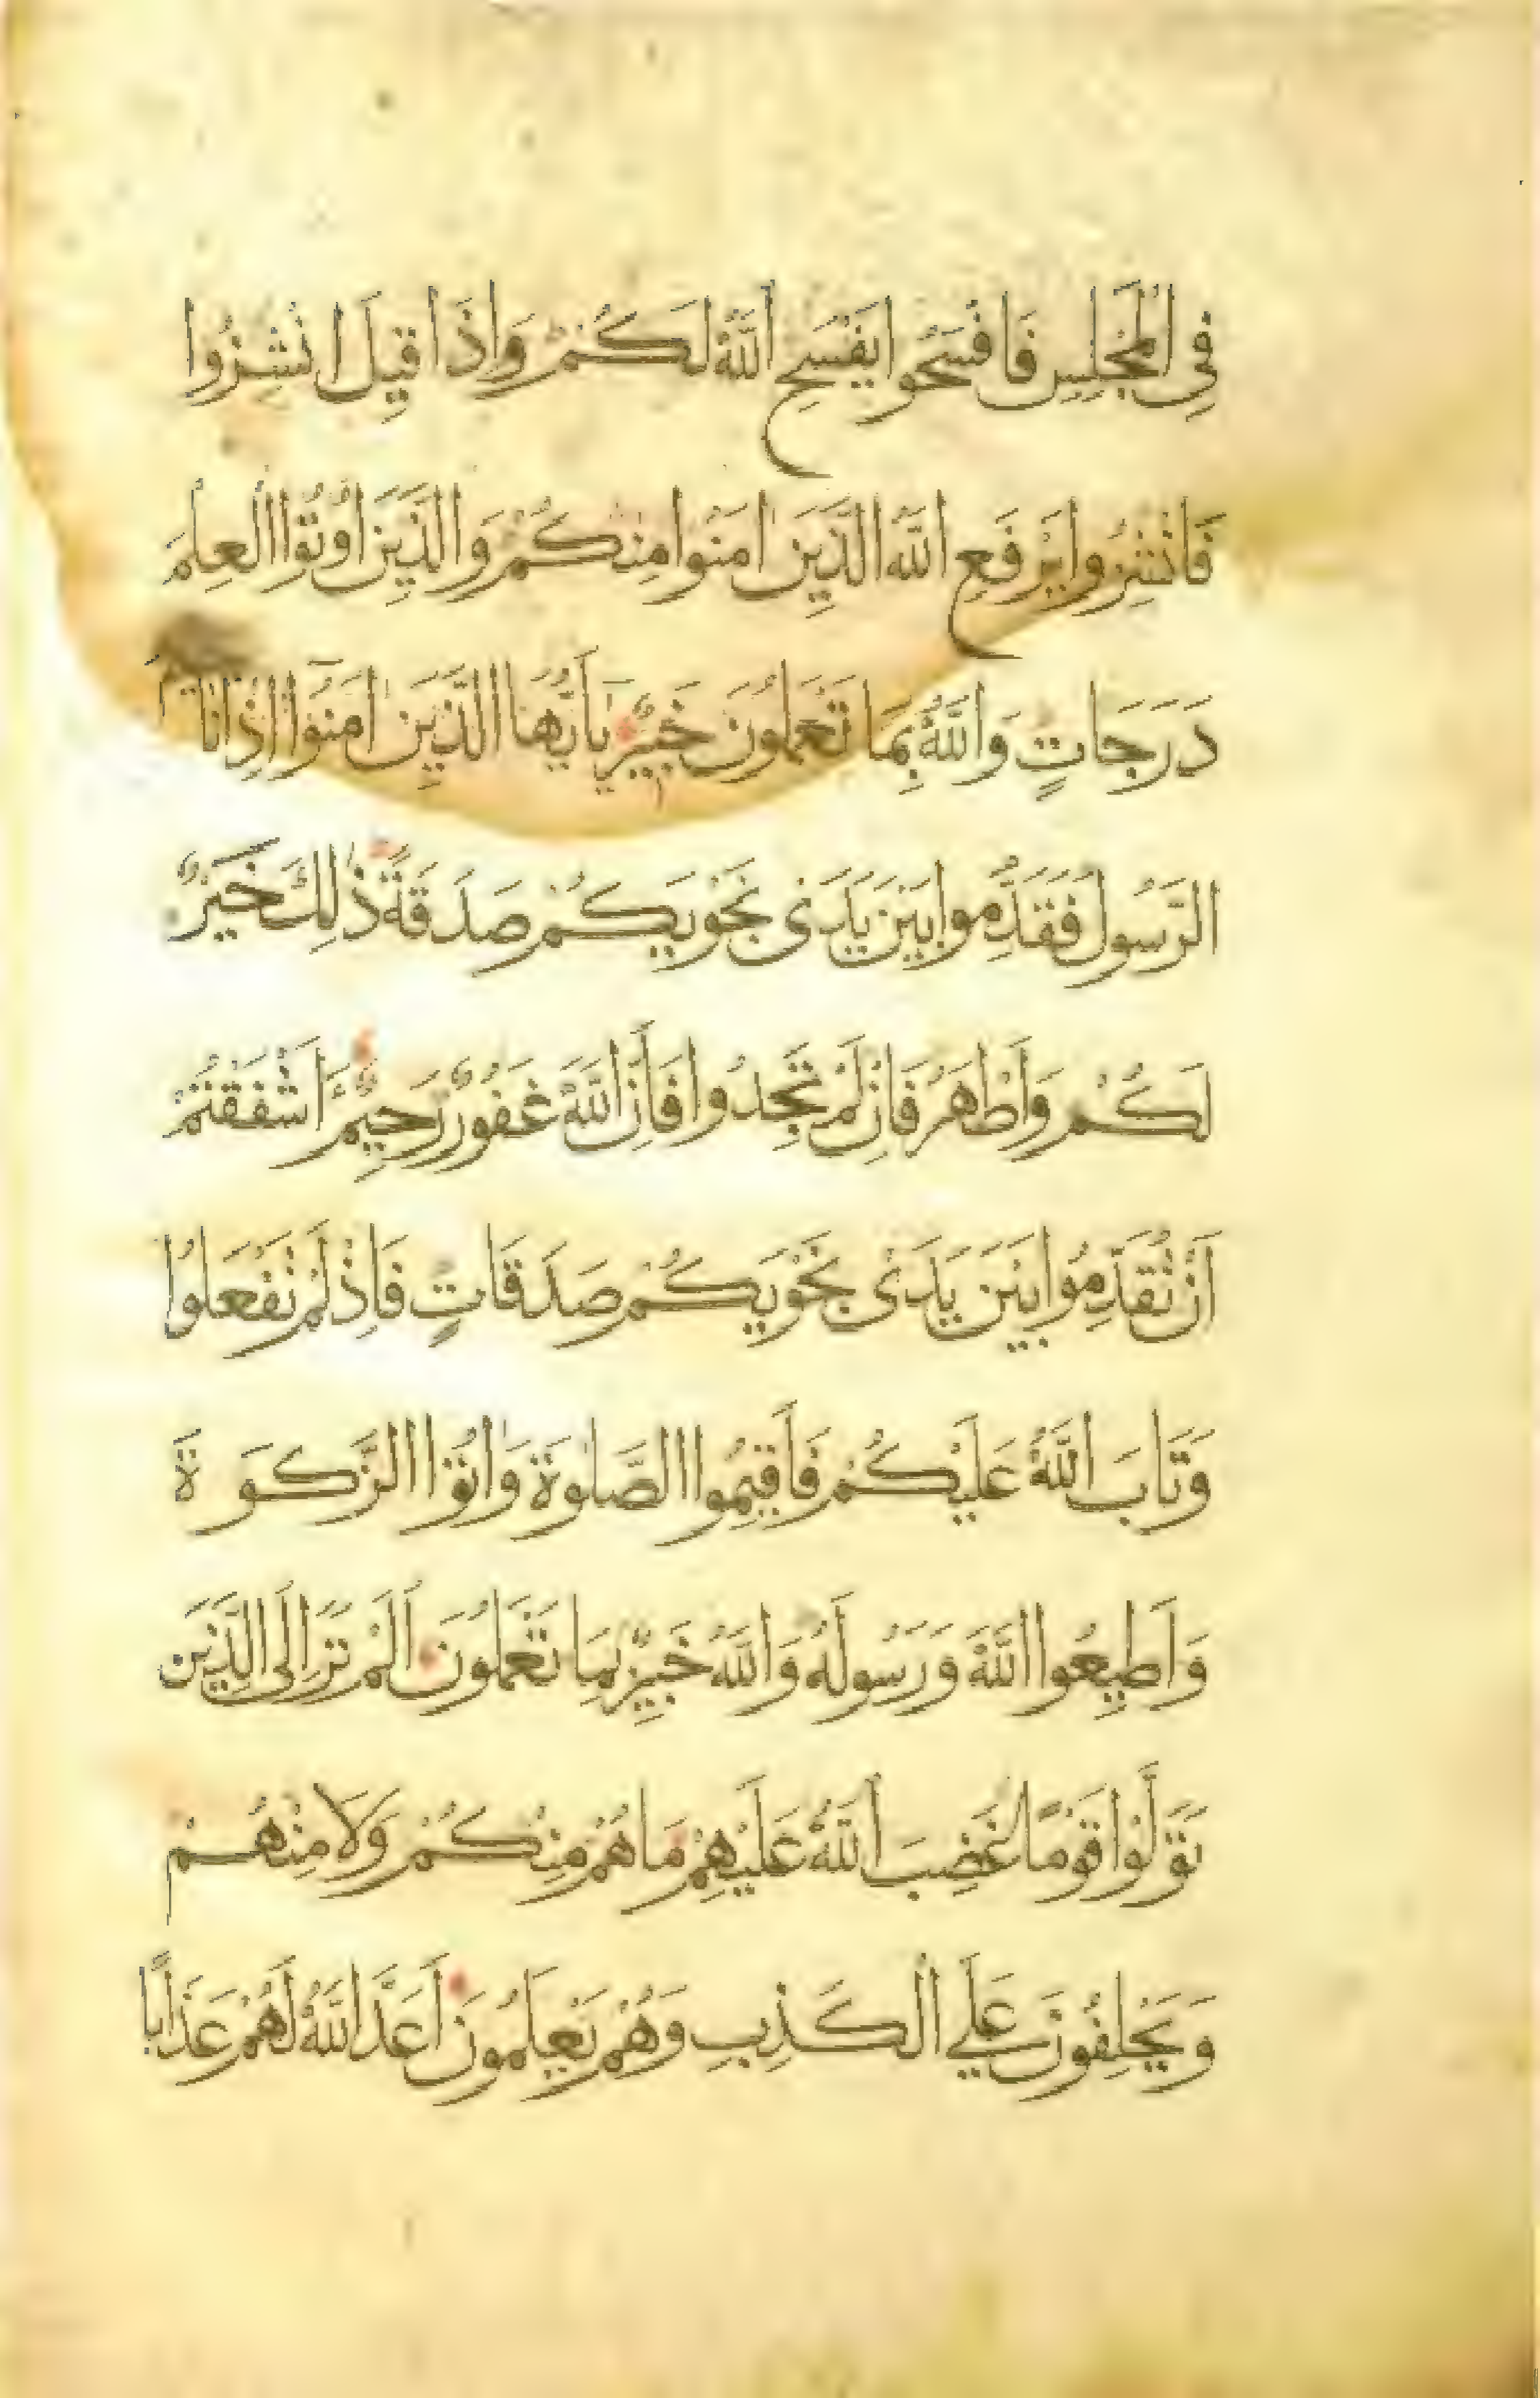 فِي الْمَجْلِسِ فَافْسَحُوا يَفْسَحِ اللَّهُ لَكُمْ وَإِذَا قِيلَ انْشِزُوا
فَانْشِزُوا يَرْفَعِ اللَّهُ الَّذِينَ اٰمَنُوا مِنْكُمْ وَالَّذِينَ أُوتُوا الْعِلْمَ
دَرَجَاتٍ وَاللَّهُ بِمَا تَعْمَلُونَ خَبِيرٌ يَا أَيُّهَا الَّذِينَ اٰمَنُوا إِذَا نَا
الرَّسُولَ فَقَدِّمُوا بَيْنَ يَدَيْ نَجْوَيكُمْ صَدَقَةً ذٰلِكَ خَيْرٌ
لَكُمْ وَأَطْهَرُ فَإِنْ لَمْ تَجِدُوا فَإِنَّ اللَّهَ غَفُورٌ رَحِيمٌ ءَاَشْفَقْتُمْ
أَنْ تُقَدِّمُوا بَيْنَ يَدَيْ نَجْوَيكُمْ صَدَقَاتٍ فَإِذْ لَمْ تَفْعَلُوا
وَتَابَ اللَّهُ عَلَيْكُمْ فَأَقِيمُوا الصَّلٰوةَ وَاٰتُوا الزَّكَوةَ
وَأَطِيعُوا اللَّهَ وَرَسُولَهُ وَاللَّهُ خَبِيرٌ بِمَا تَعْمَلُونَ أَلَمْ تَرَ إِلَى الَّذِينَ
تَوَلَّوْا قَوْمًا غَضِبَ اللَّهُ عَلَيْهِمْ مَا هُمْ مِنْكُمْ وَلَا مِنْهُمْ
وَيَحْلِفُونَ عَلَى الْكَذِبِ وَهُمْ يَعْلَمُونَ أَعَدَّ اللَّهُ لَهُمْ عَذَابًا